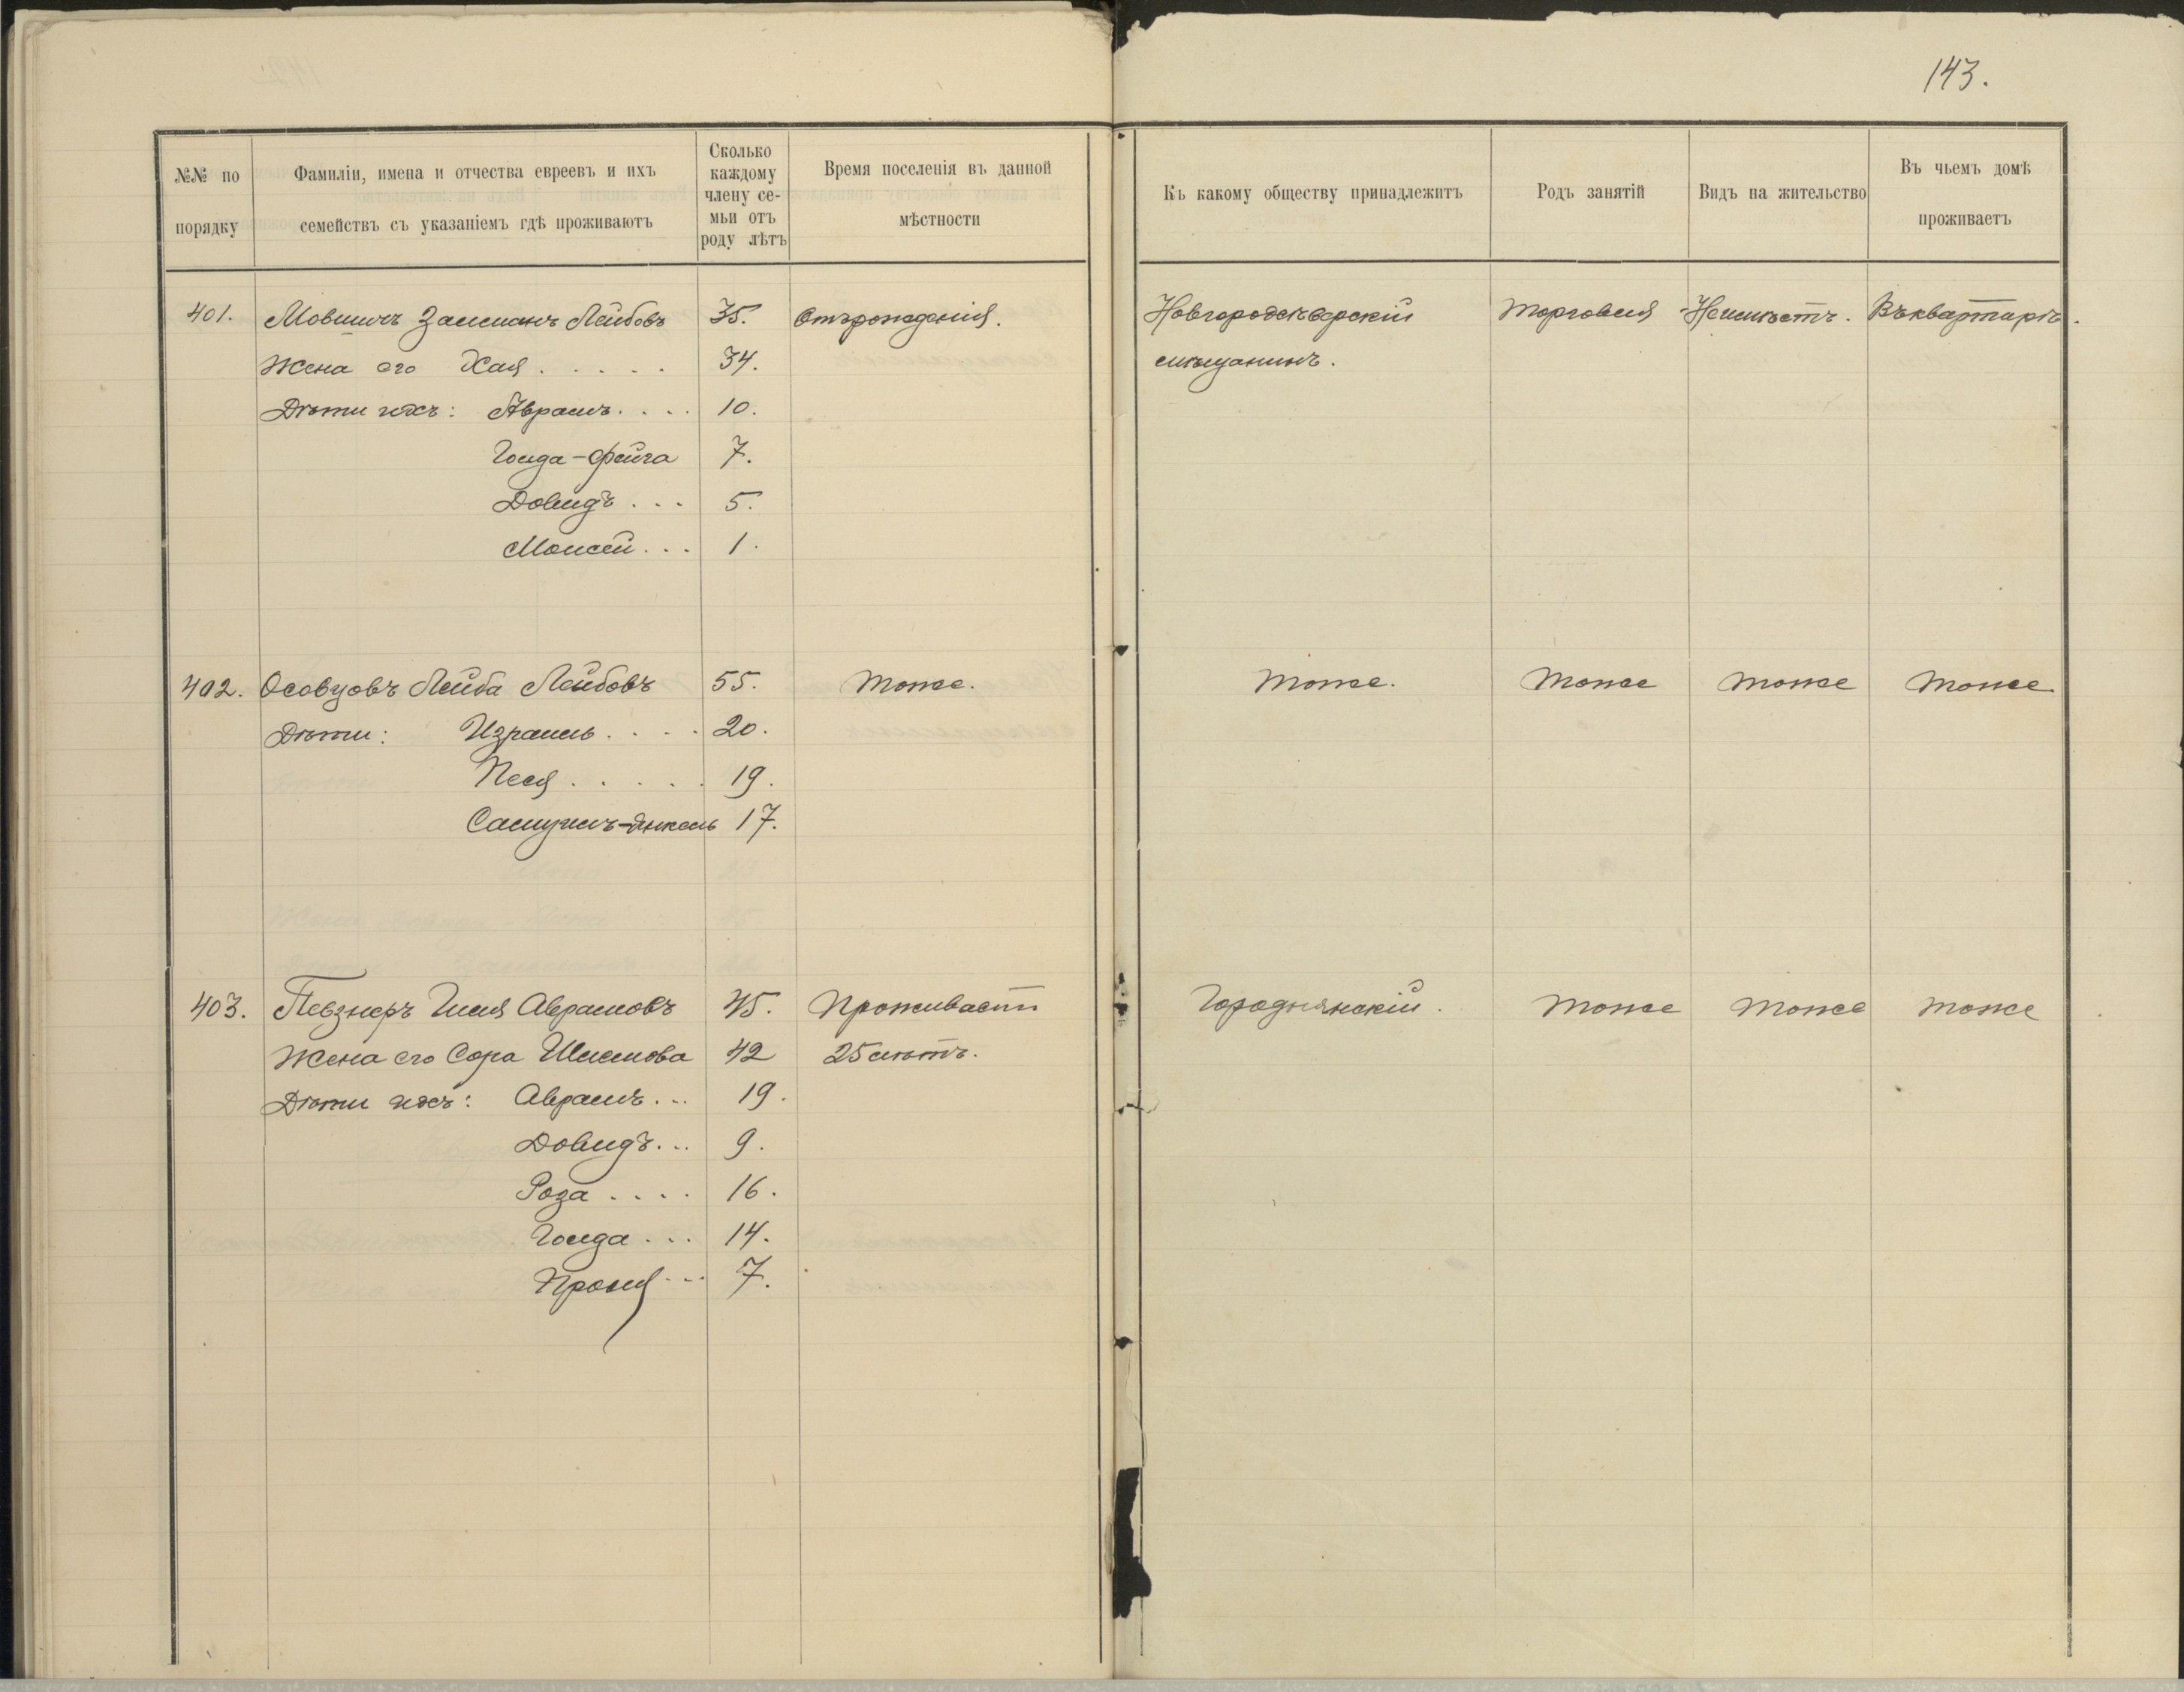 143.
№№ по порядку
Фамиліи, имена и отчества евреевъ и ихъ семействъ съ указаніемъ гдѣ проживаютъ
Сколько каждому члену се-мьи отъ роду лѣтъ
Время поселенія въ данной мѣстности
Къ какому обществу принадлежитъ
Родъ занятій
Видъ на жительство
Въ чьемъ домѣ проживаетъ
401. Мовшичъ Залманъ Лейбовъ 35. Отъ рожденія. Новгородсѣверскій Торговля Неимѣетъ. Въ квартирѣ.
Жена его Хая . . . . . 34. мѣщанинъ.
Дѣти ихъ: Абрамъ. . . . 10.
Голда-Фейга 7.
Довидъ . . . 5.
Моисей . . . 1.
402. Осовцовъ Лейба Лейбовъ 55. Тоже. Тоже. Тоже Тоже Тоже.
Дѣти: Израиль . . . . 20.
Песя . . . . . 19.
Самуилъ-Янкель 17.
403. Певзнеръ Авраамовъ 45. Проживаетъ Городнянскій. Тоже Тоже Тоже
Жена его Сора Шлемова 42 25 лѣтъ.
Дѣти ихъ: Аврамъ . . . 19.
Довидъ. . . 9.
Роза . . . . 16.
Голда . . . 14.
7.